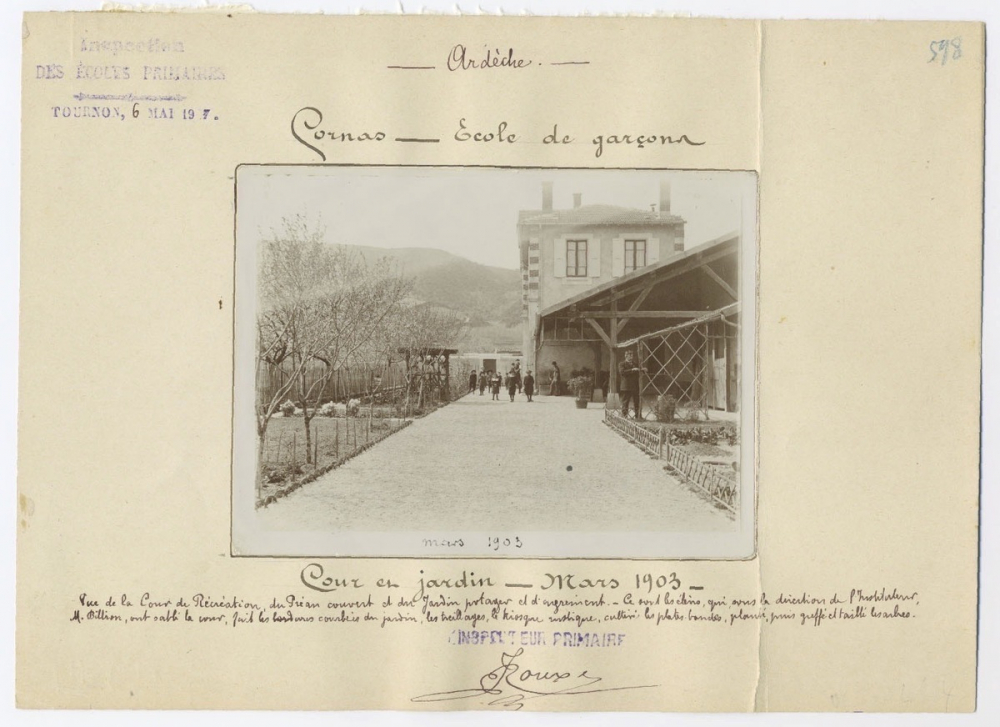 Inspection
DES ÉCOLES PRIMAIRES
TOURNON, 6 MAI 19
598
— Ardèche. —
Cornas — Ecole de garçons
mars 1903
Cour et jardin — Mars 1903 —
Vue de la Cour de Récréation, du Préau couvert et du Jardin potager et d'agrément. — Ce sont les élèves, qui sous la direction de l'Instituteur,
M. Billion, ont sablé la cour, fait les bordures courbées du jardin, les treillages, le kiosque rustique, cultivé les plates-bandes, planté, puis greffé et taillé les arbres.
L'INSPECTEUR PRIMAIRE